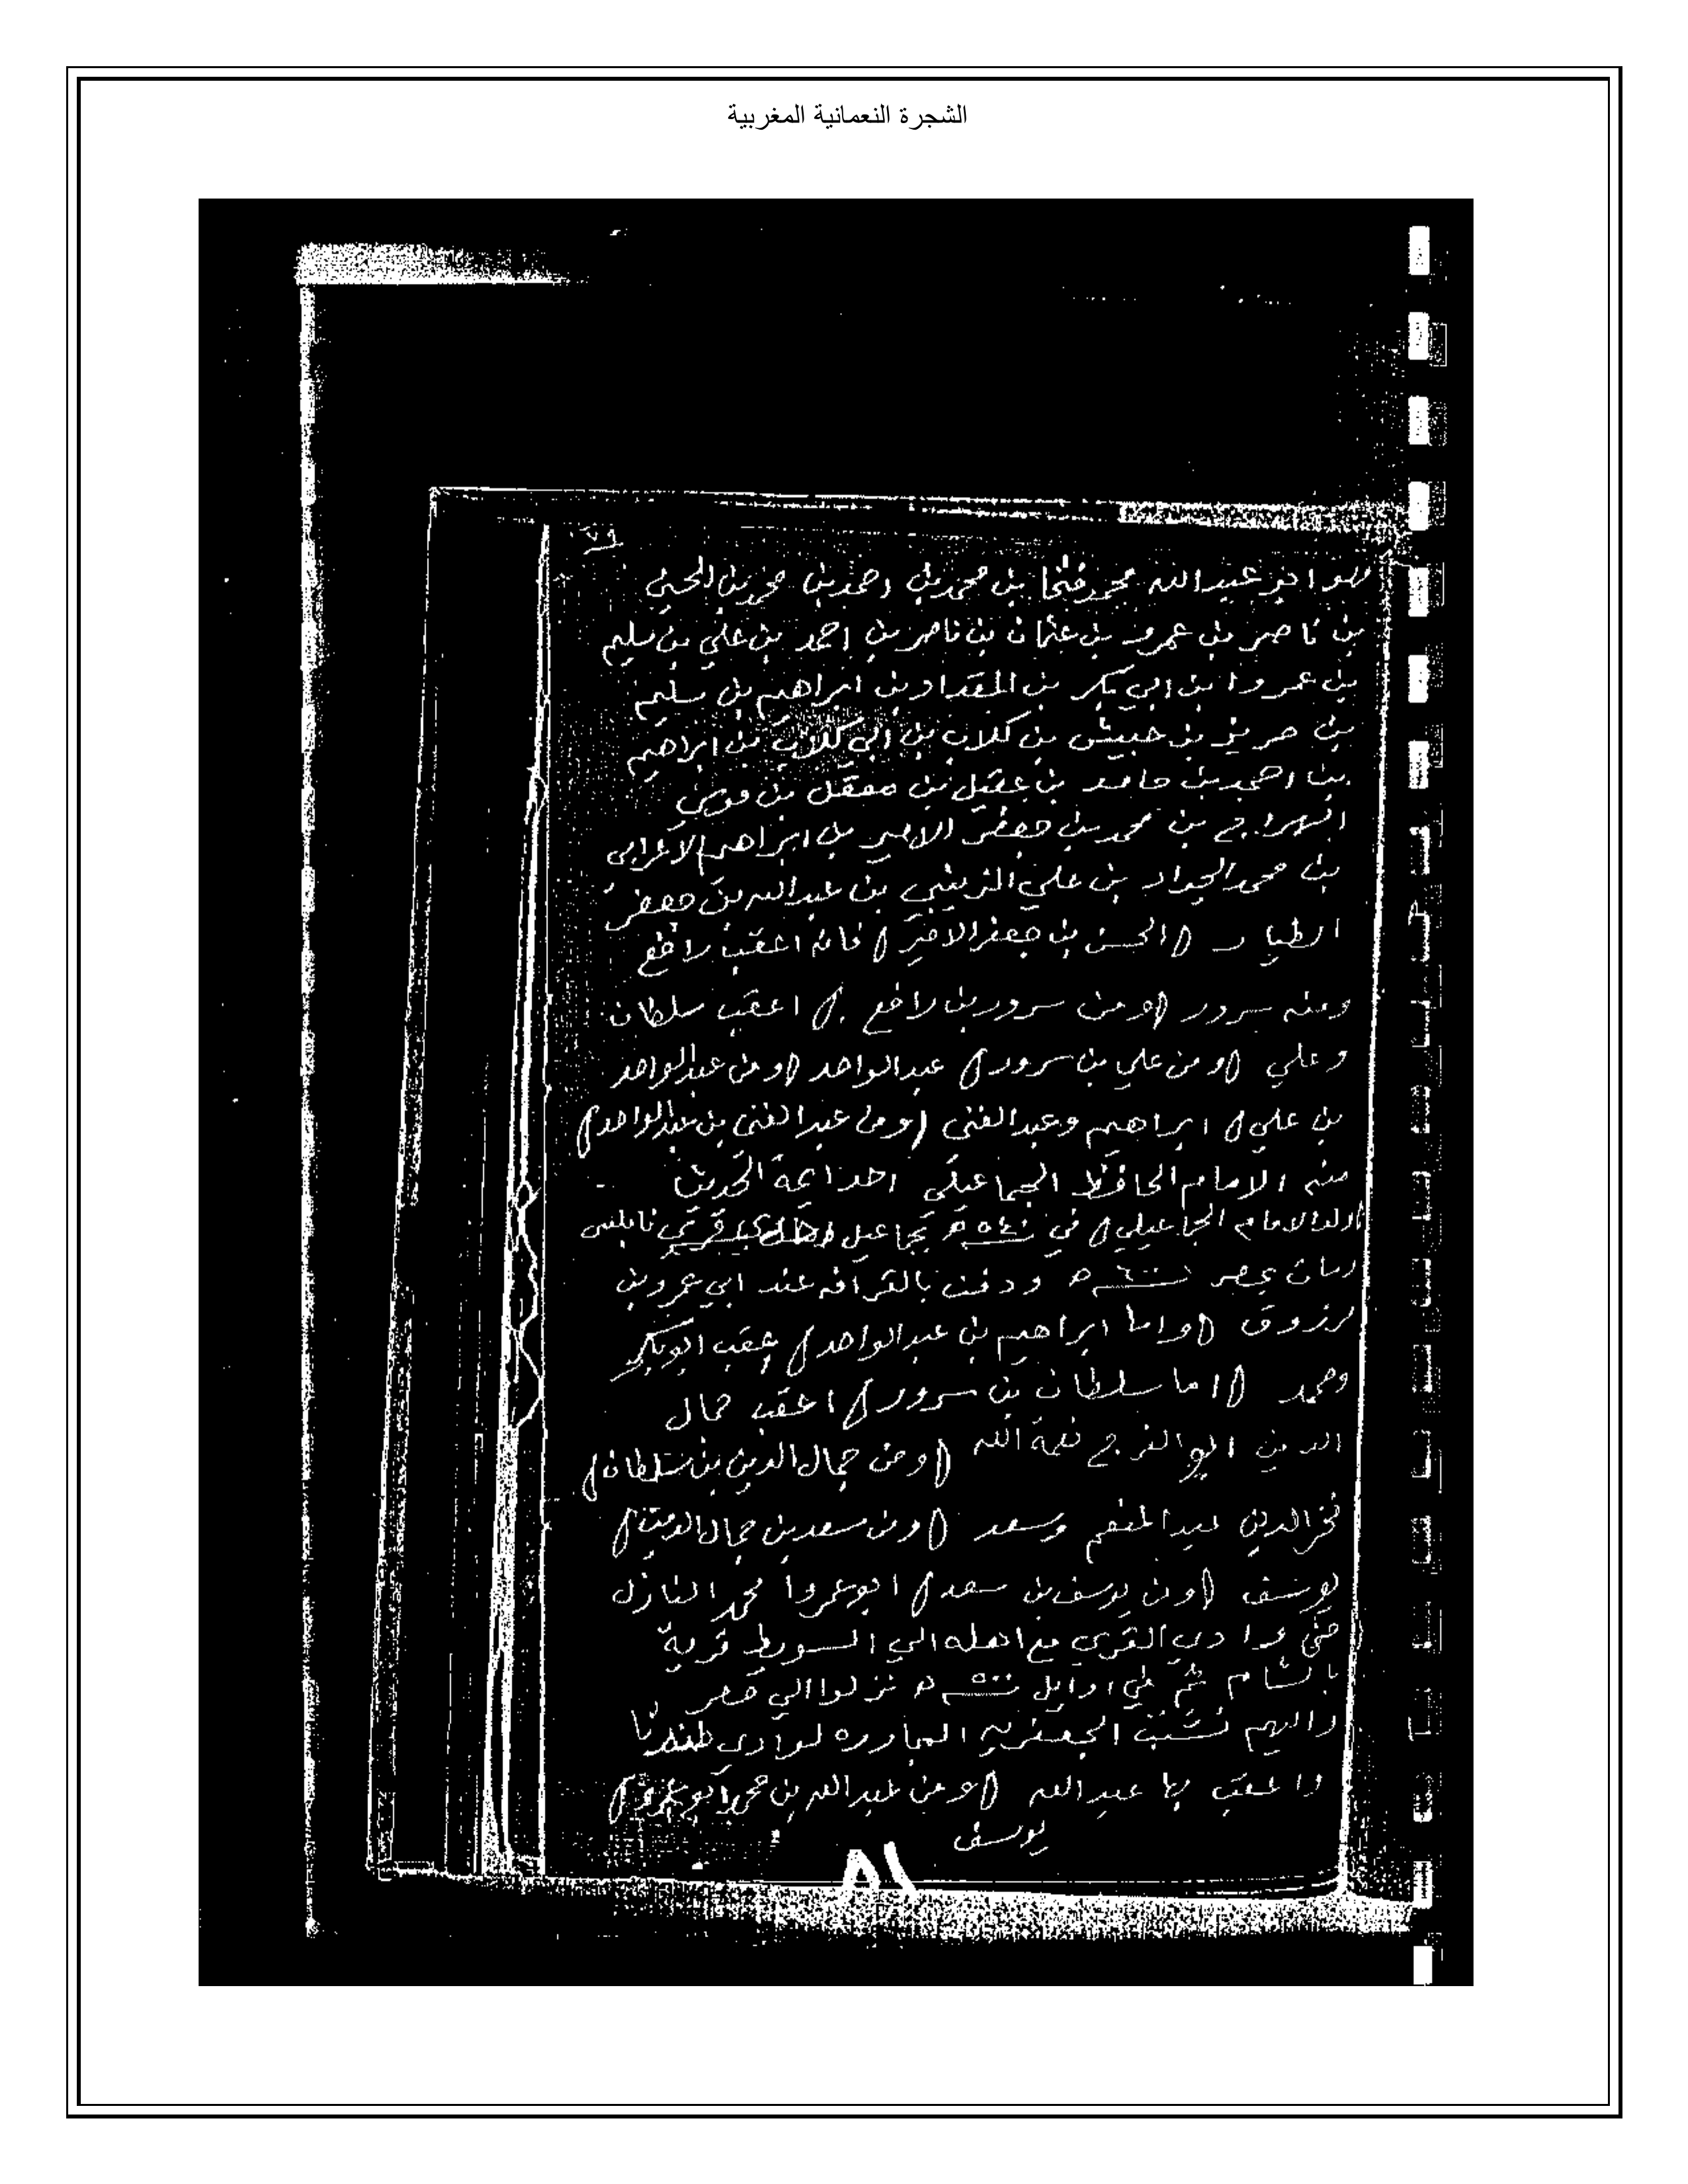 الشجرة النعمانية المغربية
٧٩
فهو ابو عبد الله محمد فتحا بن محمد بن احمد بن محمد بن الحسن
بن ناصر بن عمرو بن عثمان بن ناصر بن احمد بن علي بن سليم
بن عمروا بن ابي بكر بن المقداد بن ابراهيم بن سليم
بن حريز بن حبيش بن كلاب بن ابي كلاب بن ابراهيم
بن احمد بن حامد بن عقيل بن معقل بن
الهراج بن محمد بن جعفر الامير بن ابراهيم الاعرابي
بن محمد الجواد بن علي الزينبي بن عبد الله بن جعفر
الطيار (الحسن بن جعفر الامير) فانه اعقب رافع
وعنه سرور (ومن سرور بن رافع) اعقب سلطان
وعلي (ومن علي بن سرور) عبد الواحد (ومن عبد الواحد
بن علي) ابراهيم وعبد الغني (ومن عبد الغني بن عبد الواحد)
منه الامام الحافظ الجماعيلي احد ايمة الحديث
(ولد الامام الجماعيلي) في سنة ٥٤٠ ه بجماعيل نابلس
ومات بمصر سنة ٦٠٠ ه ودفن بالقرافه عند ابي عمرو بن
مرزوق (واما ابراهيم بن عبد الواحد) عقب ابو بكر
ومحمد (اما سلطان بن سرور) اعقب جمال
الدين ابو الفرج نعمة الله (ومن جمال الدين بن سلطان)
فخر الدين عبد المنعم وسعد (ومن سعد بن جمال الدين)
يوسف (ومن يوسف بن سعد) ابو عمروا محمد النازل
من وادي القرى مع اهله الي السويط قرية
بالشام ثم في اوايل سنة ٥٠٠ ه نزلوا الي مصر
واليهم نسبت الجعفريه المجاوره لوادي طنطدتا
واعقب بها عبد الله (ومن عبد الله بن محمد ابو عمرو)
يوسف
٨١